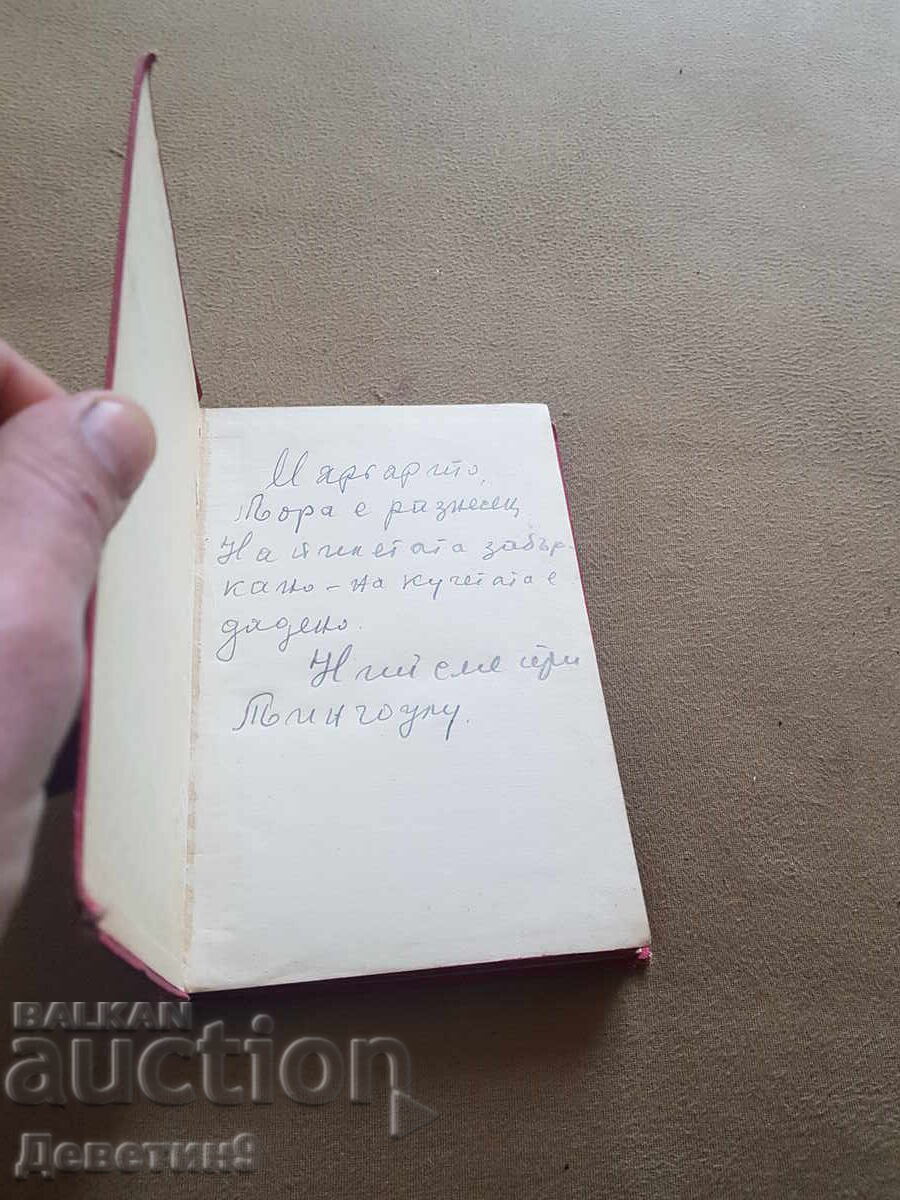 Маргарито,
Тора е разнесец
На пилетата забър-
кано - на кучетата е
дадено.
Ний сме при
BALKAN
auction
Деветин9